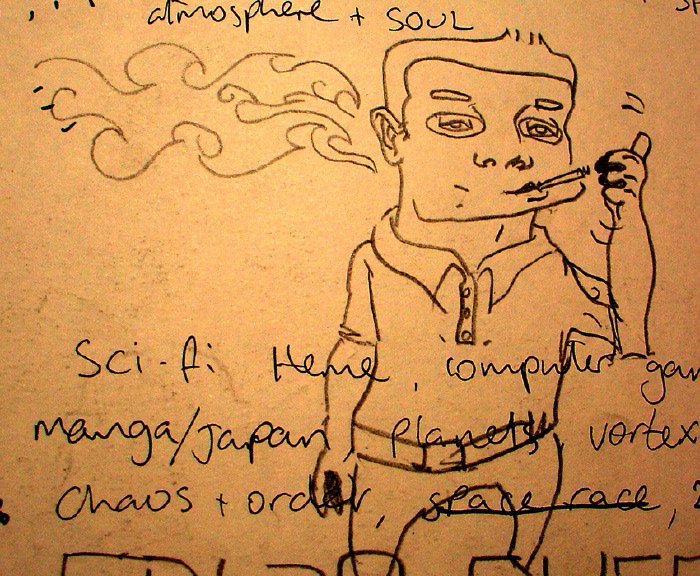 atmosphere + SOUL
Sci-fi theme, computer gam
manga/japan, planets, vortex
chaos + order, space race,